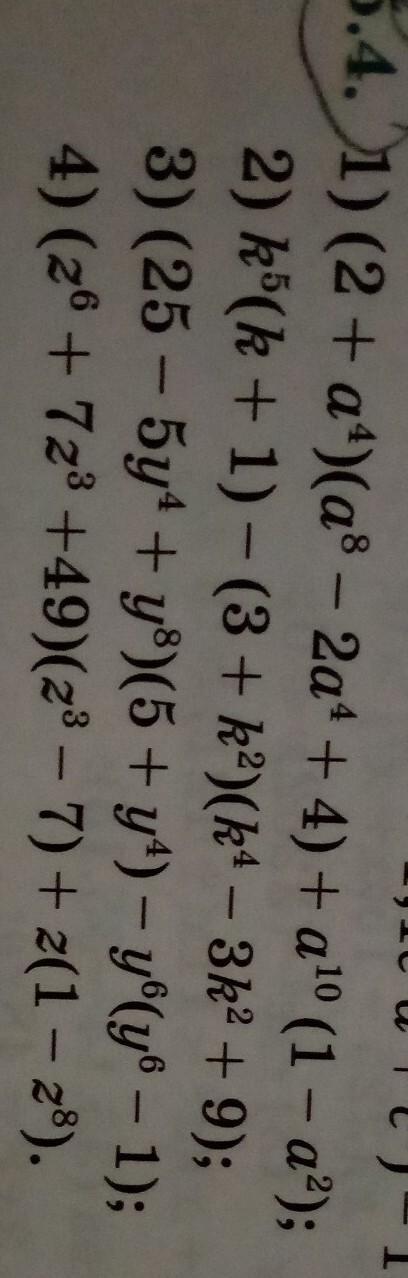 .4. 1) (2 + a⁴)(a⁸ − 2a⁴ + 4) + a¹⁰ (1 − a²);
2) k⁵(k + 1) − (3 + k²)(k⁴ − 3k² + 9);
3) (25 − 5y⁴ + y⁸)(5 + y⁴) − y⁶(y⁶ − 1);
4) (z⁶ + 7z³ +49)(z³ − 7) + z(1 − z⁸).